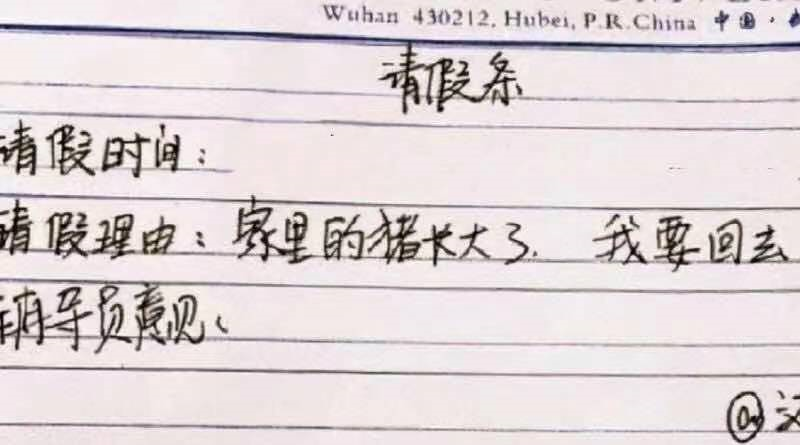 Wuhan 430212, Hubei, P.R.China 中国·
请假条
请假时间：
请假理由：家里的猪长大了. 我要回去
辅导员意见、